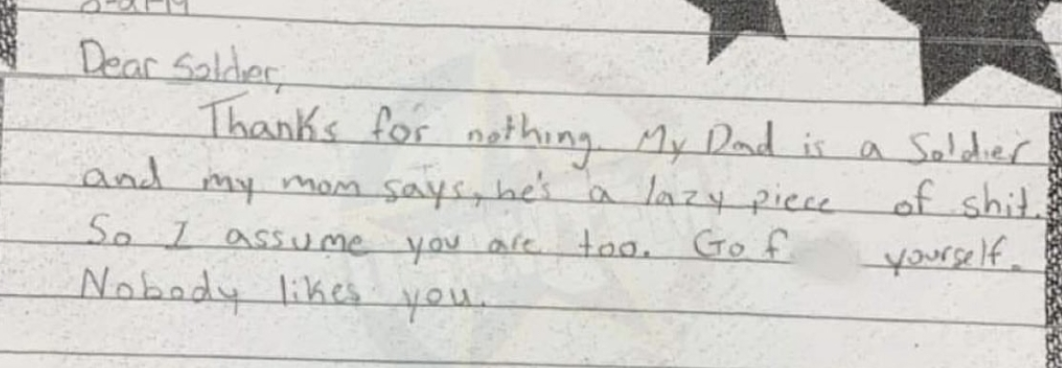 Dear Soldier,
Thanks for nothing. My Dad is a Soldier
and my mom says, he's a lazy piece of shit.
So I assume you are too. Go f yourself.
Nobody likes you.